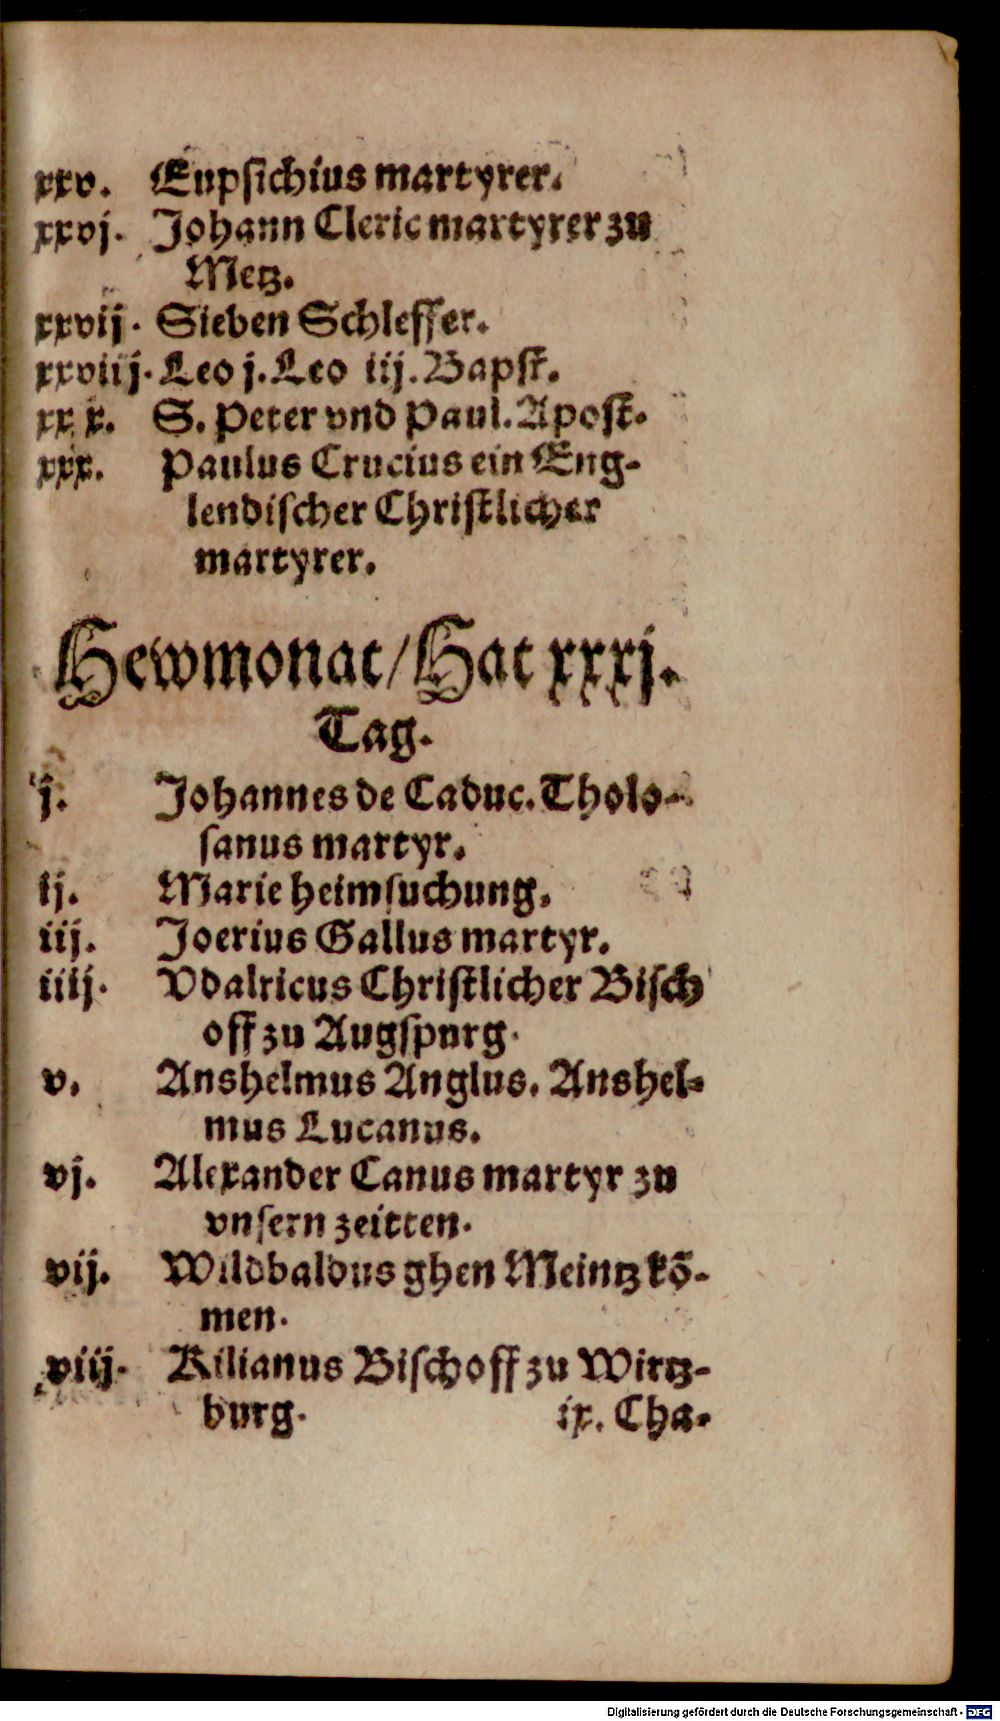 xxv. Eupſichius martyrer.
xxvj. Johann Cleric martyrer zu
Metz.
xxvij. Sieben Schleffer.
xxviij. Leo j. Leo iij. Bapſt.
xx x. S. Peter vnd Paul. Apoſt.
xxx. Paulus Crucius ein Eng-
lendiſcher Chriſtlicher
martyrer.
Hewmonat/Hat xxxj.
Tag.
j. Johannes de Caduc. Tholo-
ſanus martyr.
ij. Marie heimſuchung.
iij. Joerius Gallus martyr.
iiij. Vdalricus Chriſtlicher Biſch
off zu Augſpurg.
v. Anshelmus Anglus. Anshel-
mus Lucanus.
vj. Alexander Canus martyr zu
vnſern zeitten.
vij. Wildbaldus ghen Meintz kõ-
men.
viij. Kilianus Biſchoff zu Wirtz-
burg. ix. Cha-
Digitalisierung gefördert durch die Deutsche Forschungsgemeinschaft - DFG